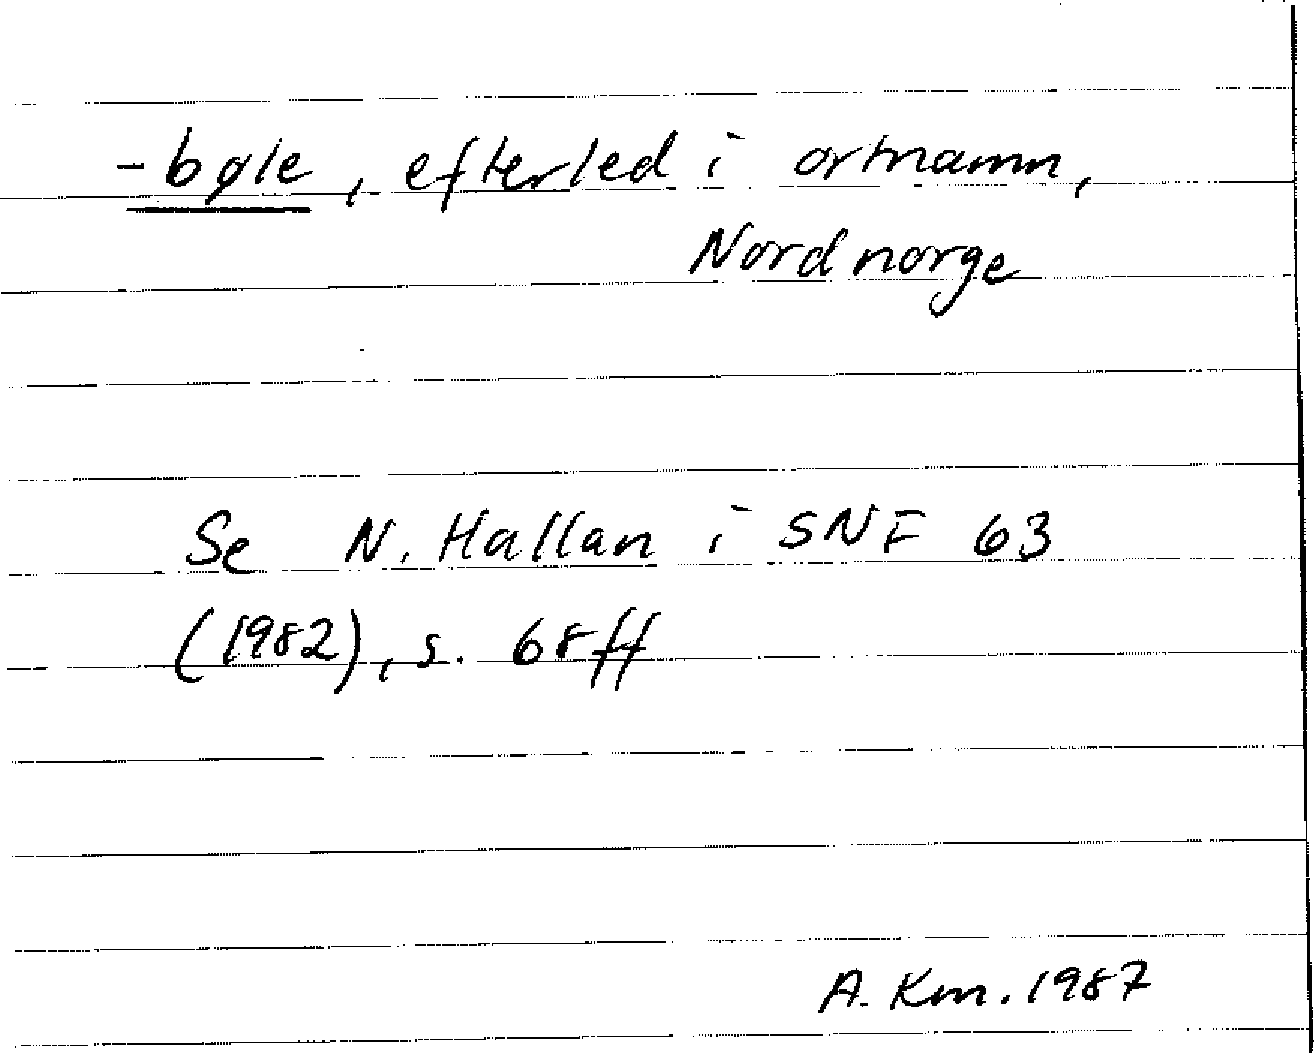 -bøle, efterled i ortnamn,
Nordnorge
Se N. Hallan i SNF 63
(1982), s. 68ff
A. Km. 1987